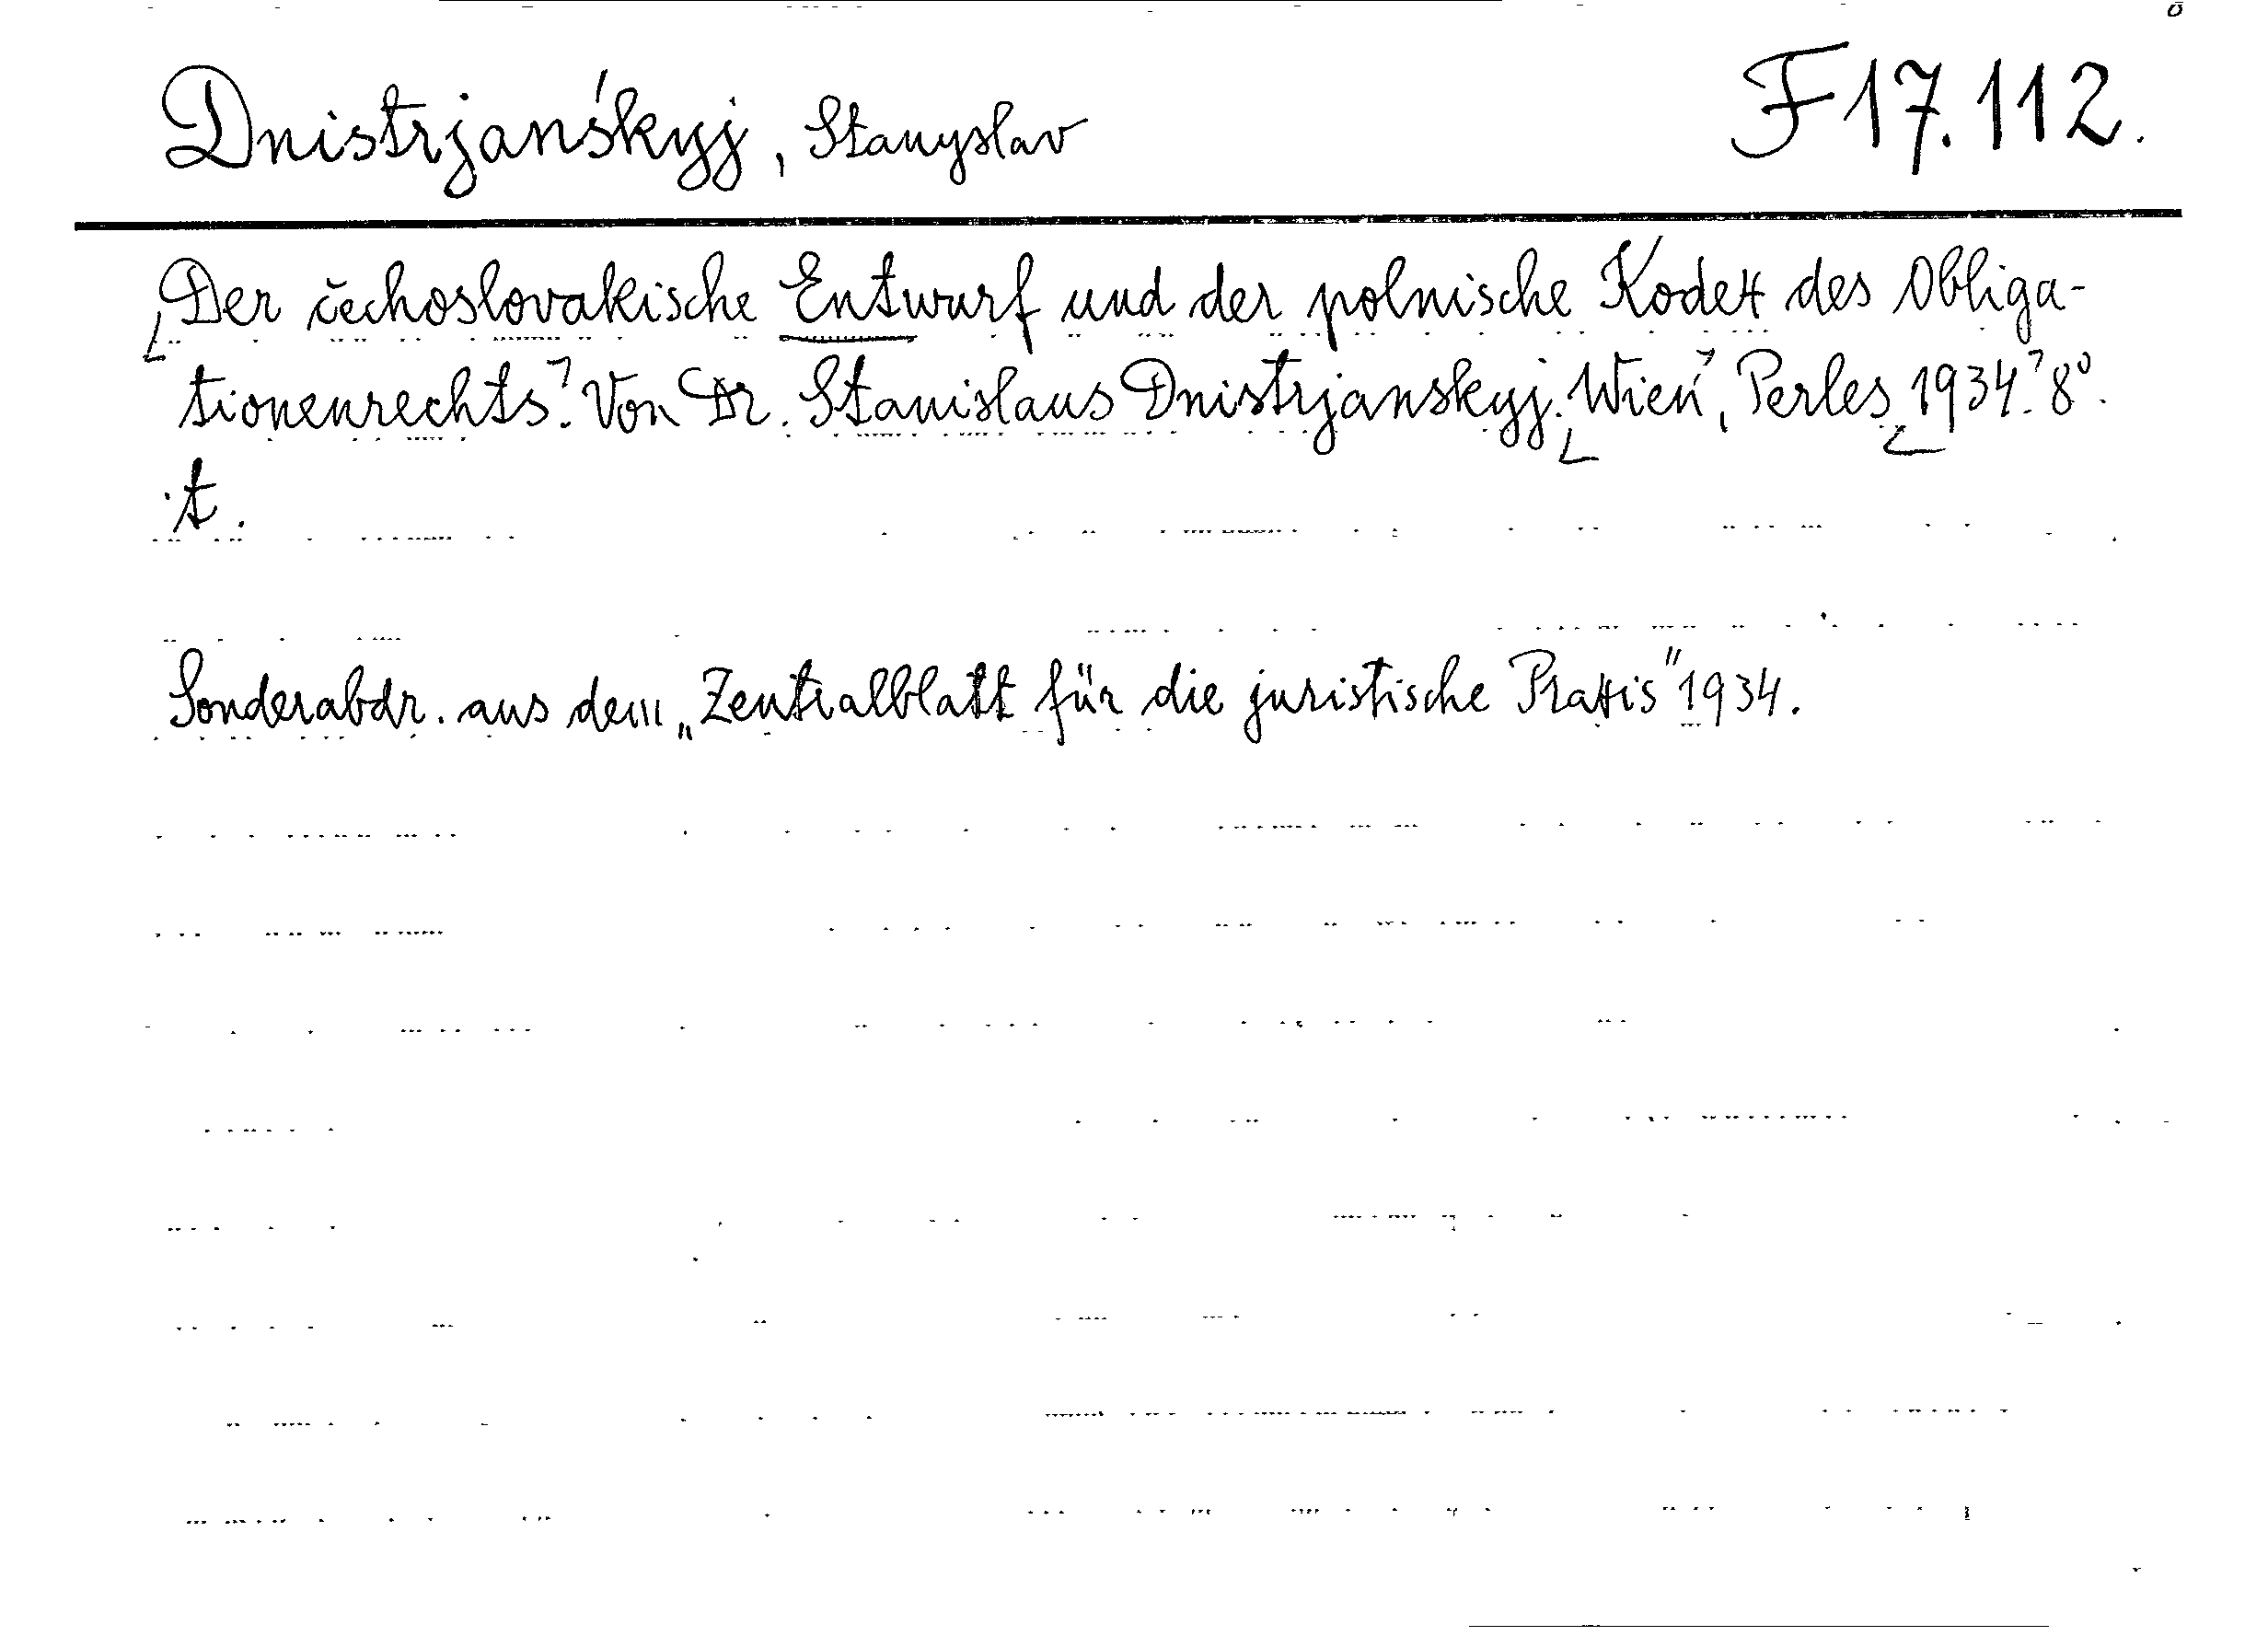 Dnistrjanśkyj, Stanyslav F17.112.
Der čechoslovakische Entwurf und der polnische Kodex des Obliga-
tionenrechts. Von Dr. Stanislaus Dnistrjanskyj. Wien, Perles 1934. 8°.
t.
Sonderabdr. aus dem „Zentralblatt für die juristische Praxis" 1934.